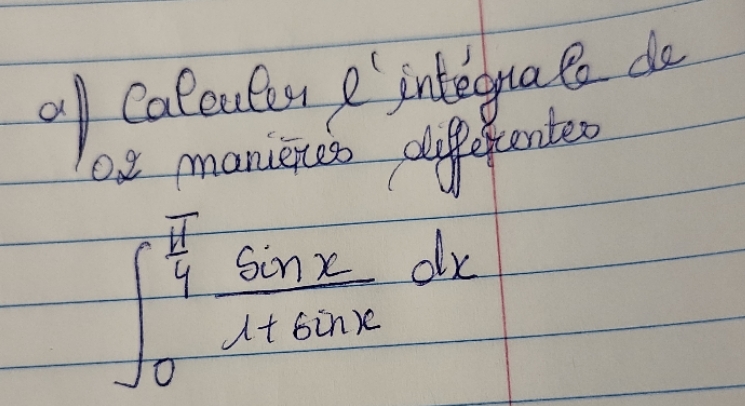 a) Calculer l'intégrale de
02 manières differentes
∫₀^{π/4} sin x / (1 + sin x) dx